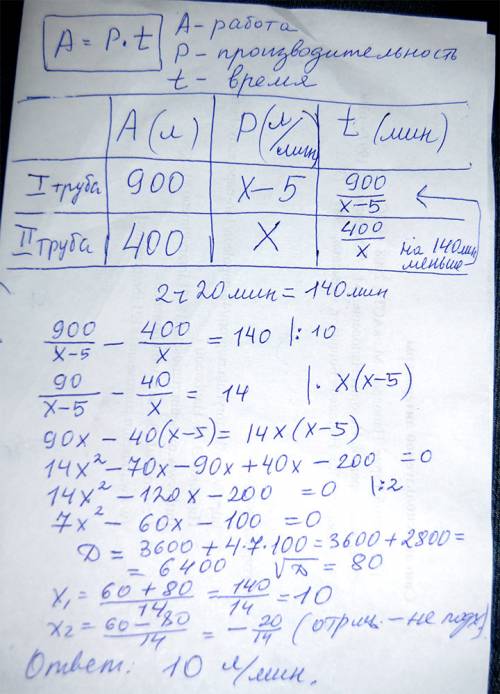 A = P·t
A - работа
P - производительность
t - время
A (л) P (л/мин) t (мин)
I труба 900 x-5 900/(x-5)
II труба 400 x 400/x на 140 мин меньше
2ч 20мин = 140мин
900/(x-5) - 400/x = 140 |: 10
90/(x-5) - 40/x = 14 |· x(x-5)
90x - 40(x-5) = 14x(x-5)
14x² - 70x - 90x + 40x - 200 = 0
14x² - 120x - 200 = 0 |:2
7x² - 60x - 100 = 0
D = 3600 + 4·7·100 = 3600 + 2800 =
= 6400 √D = 80
x₁ = (60 + 80)/14 = 140/14 = 10
x₂ = (60 - 80)/14 = -20/14 (отриц. - не подх)
Ответ: 10 л/мин.